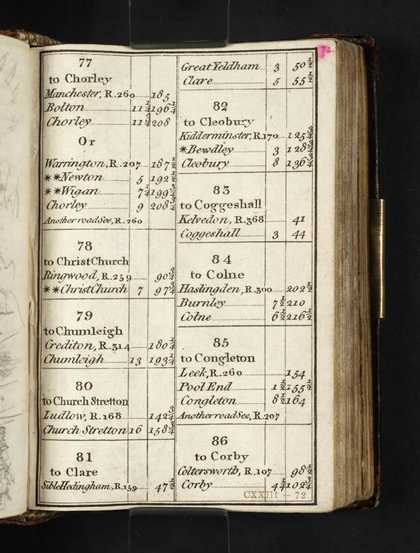 77
to Chorley
Manchester, R.260 185
Bolton 11½ 196½
Chorley 11½ 208
Or
Warrington, R.207 187½
**Newton 5 192½
**Wigan 7¼ 199¾
Chorley 9 208¾
Another road See, R.260
78
to Christ Church
Ringwood, R.259 90¾
**Christ Church 7 97¾
79
to Chumleigh
Crediton, R.314 180¼
Chumleigh 13 193¼
80
to Church Stretton
Ludlow, R.168 142¾
Church Stretton 16 158¾
81
to Clare
Sible Hedingham, R.159 47½
Great Yeldham 3 50½
Clare 5 55½
82
to Cleobury
Kidderminster, R.170 125¾
*Bewdley 3 128¾
Cleobury 8 136¾
83
to Coggeshall
Kelvedon, R.368 41
Coggeshall 3 44
84
to Colne
Haslingden, R.300 202½
Burnley 7½ 210
Colne 6½ 216½
85
to Congleton
Leek, R.260 154
Pool End 1½ 155½
Congleton 8½ 164
Another road See, R.207
86
to Corby
Coltersworth, R.107 98½
Corby 4¼ 102¾
CXXIII - 72